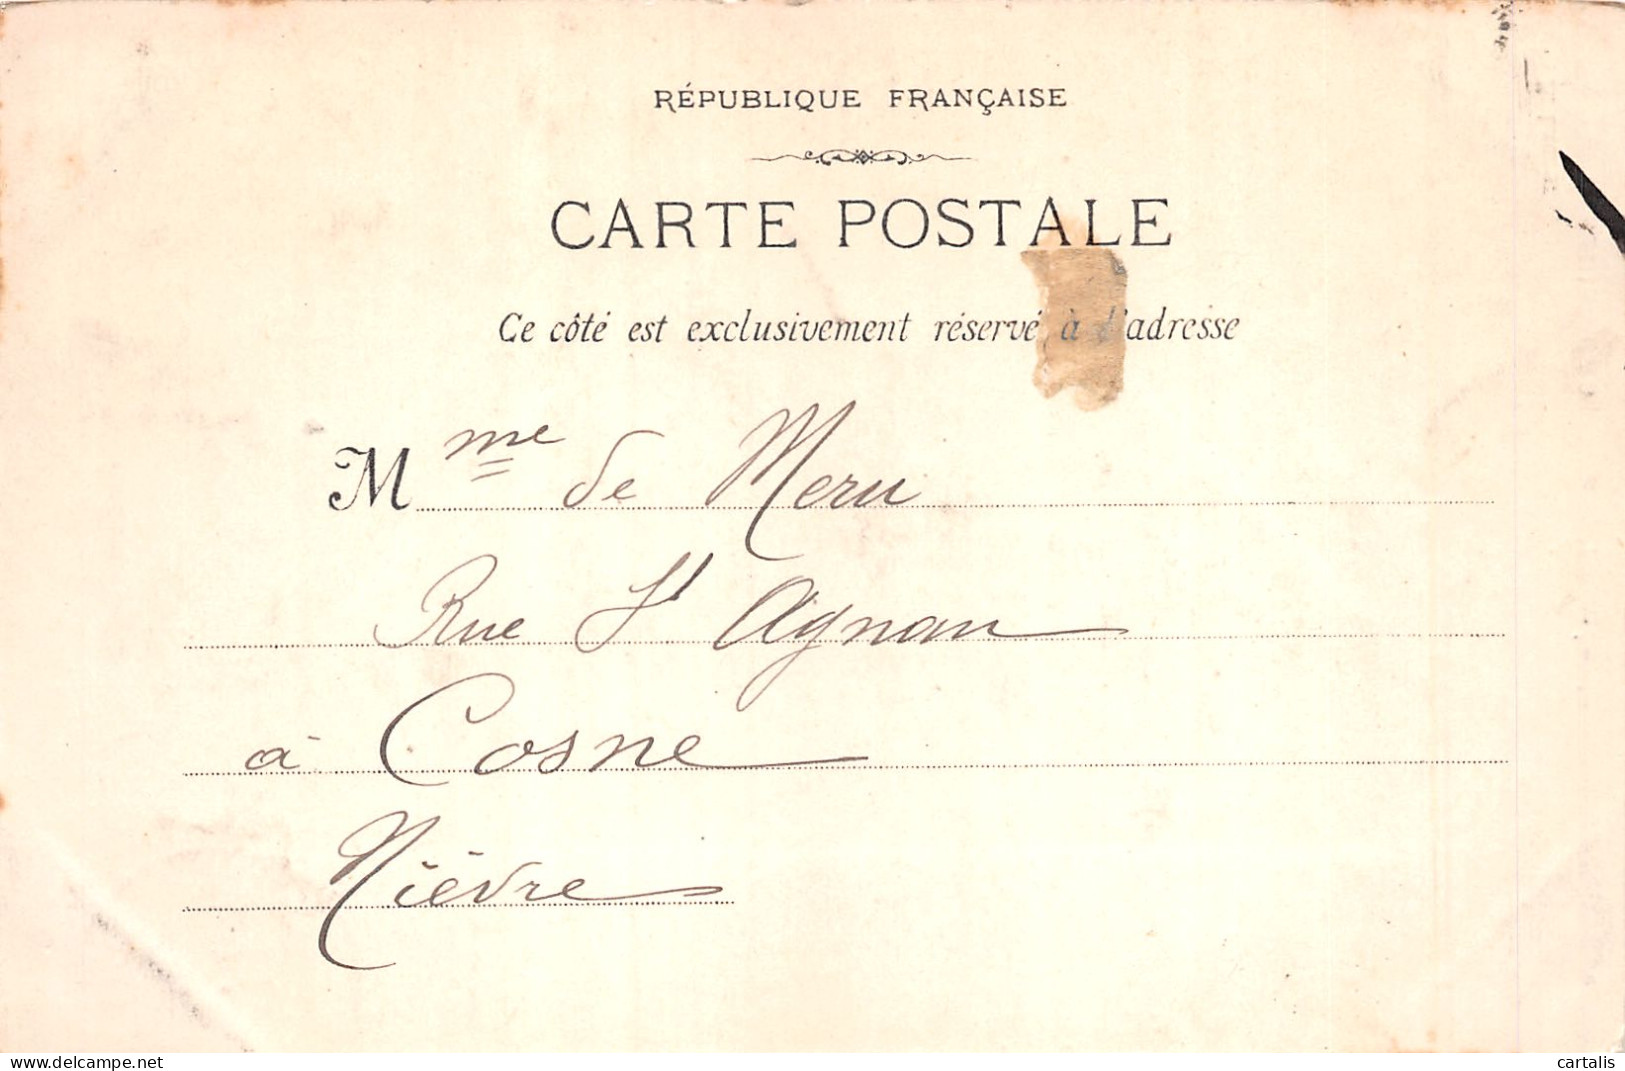 RÉPUBLIQUE FRANÇAISE
CARTE POSTALE
Ce côté est exclusivement réservé à l'adresse
Mme de Meru
Rue St Agnan
à Cosne
Nièvre
www.delcampe.net
cartalis